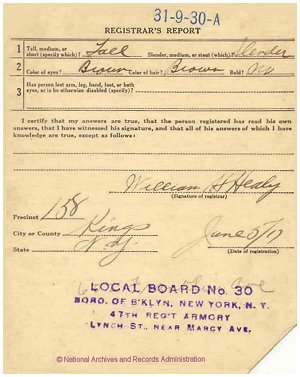 31-9-30-A
REGISTRAR'S REPORT
1 Tall, medium, or short (specify which)? Tall Slender, medium, or stout (which)? Slender
2 Color of eyes? Brown Color of hair? Brown Bald?
3 Has person lost arm, leg, hand, foot, or both
eyes, or is he otherwise disabled (specify)?
I certify that my answers are true, that the person registered has read his own
answers, that I have witnessed his signature, and that all of his answers of which I
have knowledge are true, except as follows:
William H Healy
(Signature of registrar)
Precinct 158
City or County Kings
State N.Y.
June 5/17
(Date of registration)
LOCAL BOARD No. 30
BORO. OF B'KLYN, NEW YORK, N. Y.
47TH REG'T ARMORY
LYNCH ST., NEAR MARCY AVE.
© National Archives and Records Administration